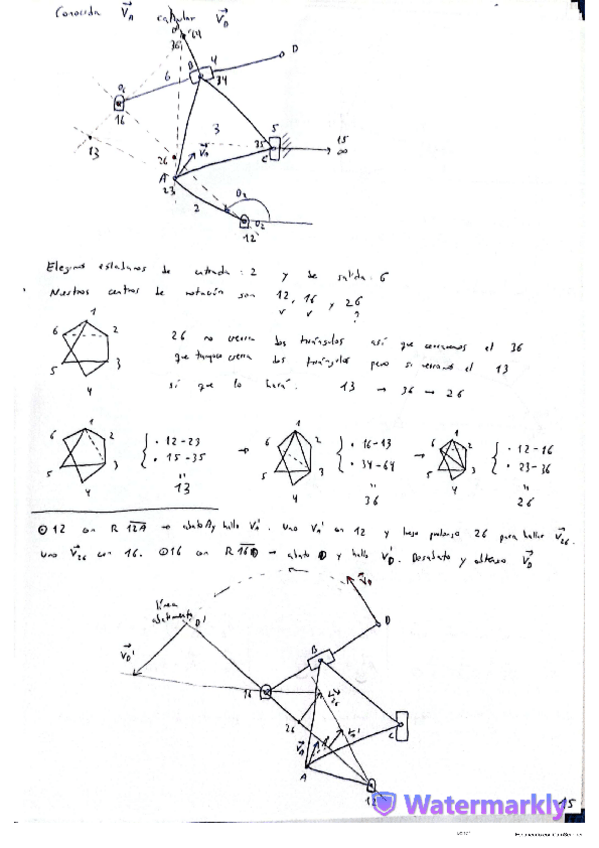 Conocida V_A calcular V_D
D' 64
36
B 4
34
D
6
O₆
16
3
5
35
C
15
∞
13
26
V_A
A
23
2
O₂
12
Elegimos eslabones de entrada: 2 y de salida: 6
Nuestros centros de rotación son 12, 16 y 26
✓ ✓ ?
1
6 2
5 3
4
26 no cierra dos triángulos así que cerraremos el 36
que tampoco cierra dos triángulos pero si cerramos el 13
sí que lo hará. 13 → 36 → 26
1
6 2
5 3
4
· 12-23
· 15-35
=
13
→
1
6 2
5 3
4
· 16-13
· 34-64
=
36
→
1
6 2
5 3
4
· 12-16
· 23-36
=
26
⊙ 12 con R 12A → abato A y hallo V_A'. Uno V_A' con 12 y luego prolongo 26 para hallar V_26.
Uno V_26 con 16. ⊙ 16 con R 16D → abato D y hallo V_D'. Desabato y obtengo V_D
V_D
línea
abatimiento D'
D
V_D'
B
16
V_26
26
C
V_A
A'
V_A'
A
12
Watermarkly
15